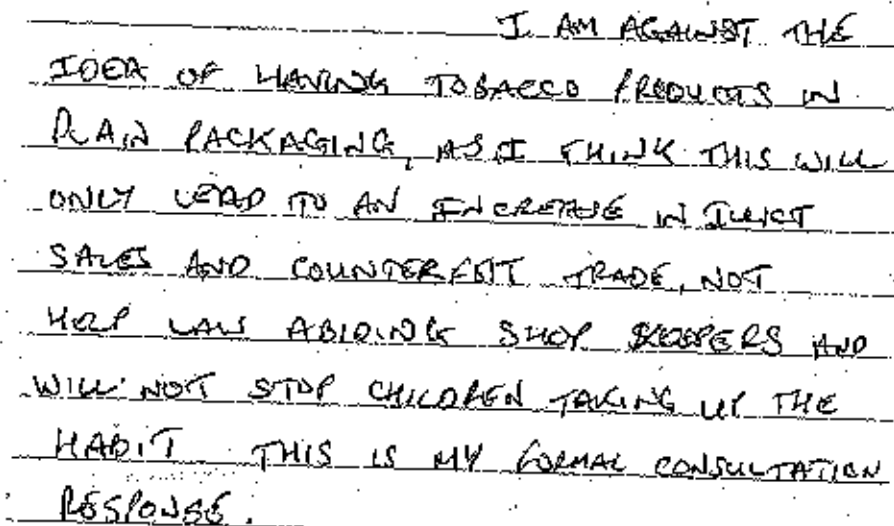 I AM AGAINST THE
IDEA OF HAVING TOBACCO PRODUCTS IN
PLAIN PACKAGING, AS I THINK THIS WILL
ONLY LEAD TO AN INCREASE IN ILLICT
SALES AND COUNTERFEIT TRADE, NOT
HELP LAW ABIDING SHOP KEEPERS AND
WILL NOT STOP CHILDREN TAKING UP THE
HABIT THIS IS MY FORMAL CONSULTATION
RESPONSE.